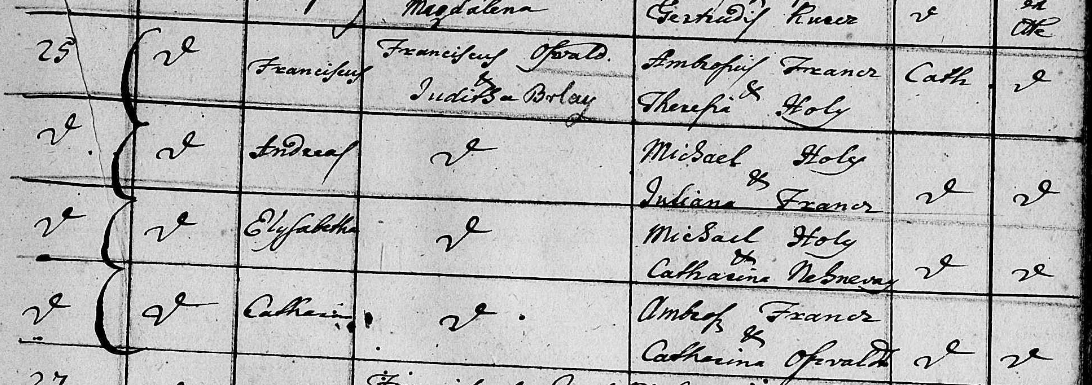 Magdalena Gertrudis Kucer d
Cath
25 d Franciscus Franciscus Oswald. Ambrosius Francz Cath d
& Juditha Brlay & Theresia Holy
d d Andreas d Michael Holy
& Juliana Francz d d
d d Elysabetha d Michael Holy
& Catharina d d
d d d Ambros Francz
& Catharina Oswald d d
27